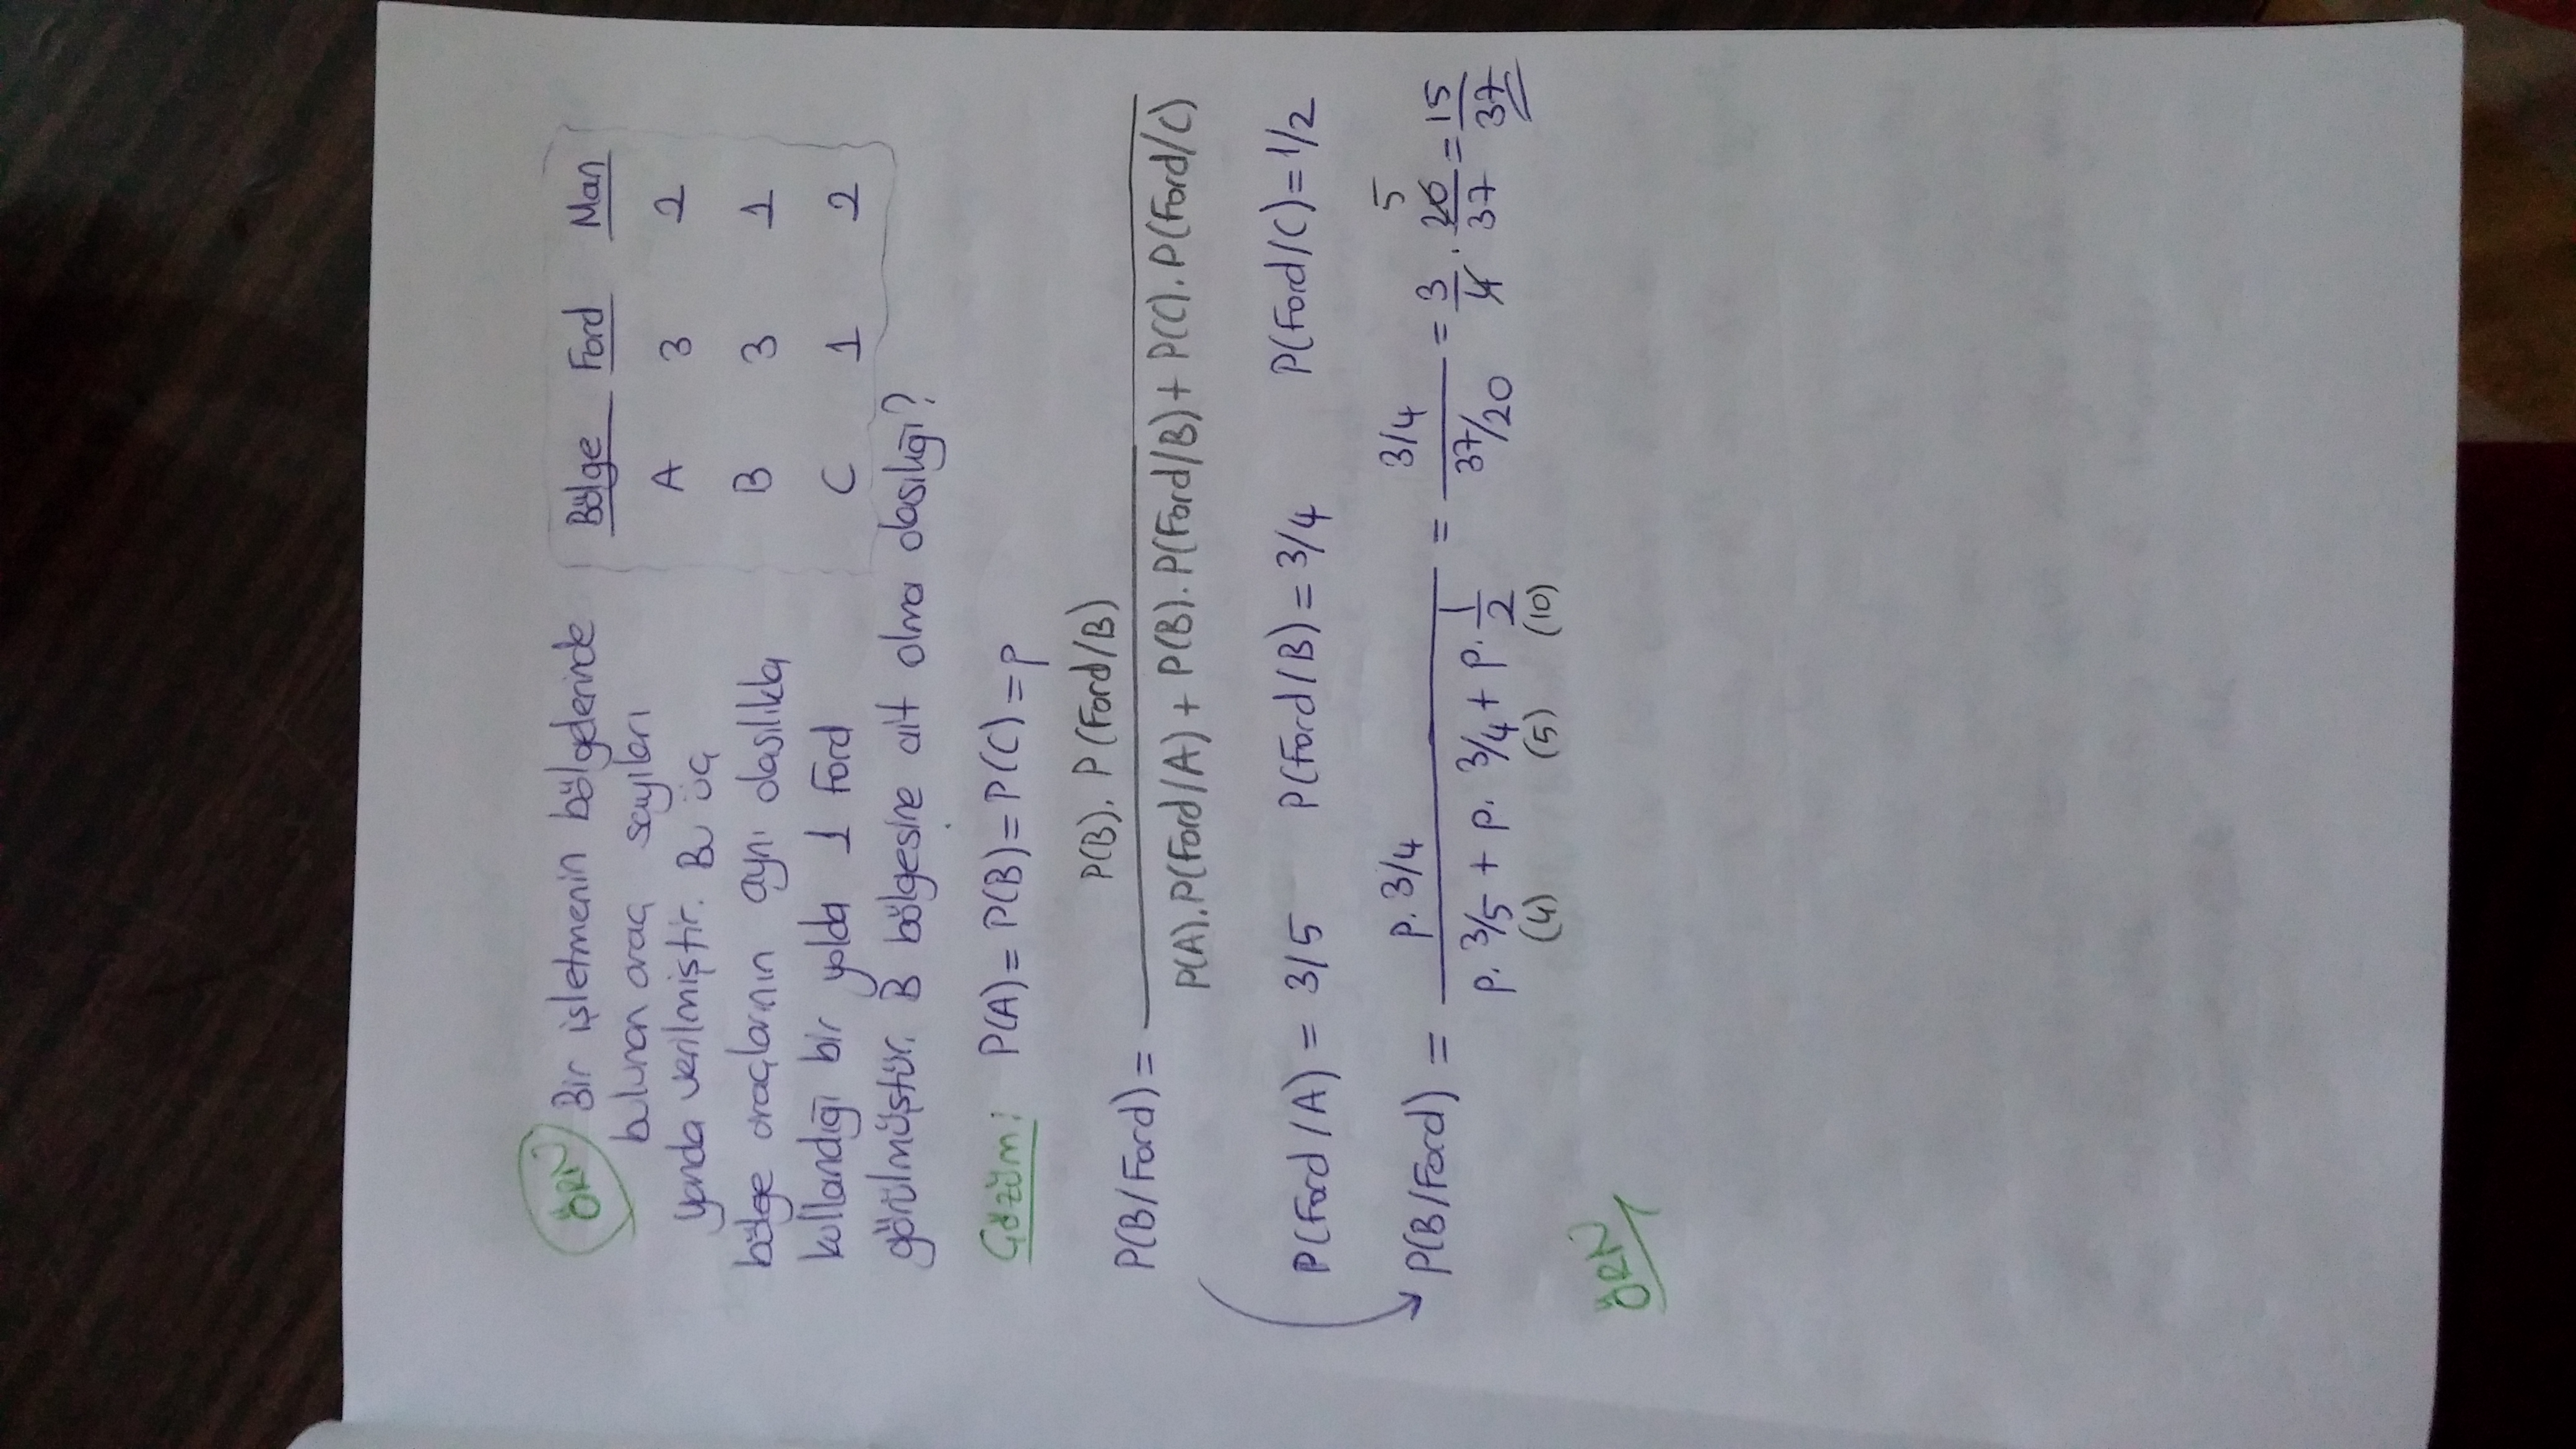 ÖRN Bir işletmenin bölgelerinde
bulunan araç sayıları
yanda verilmiştir. Bu üç
bölge araçlarının aynı olasılıkla
kullandığı bir yolda 1 Ford
görülmüştür. B bölgesine ait olma olasılığı?
Bölge Ford Man
A 3 2
B 3 1
C 1 2
Çözüm: P(A) = P(B) = P(C) = p
P(B/Ford) = P(B). P(Ford/B)
P(A).P(Ford/A) + P(B). P(Ford/B) + P(C). P(Ford/C)
P(Ford/A) = 3/5 P(Ford/B) = 3/4 P(Ford/C) = 1/2
P(B/Ford) = p. 3/4 / p. 3/5 + p. 3/4 + p. 1/2 = 3/4 / 37/20 = 3/4 . 20/37 = 15/37
5
(4) (5) (10)
ÖRN